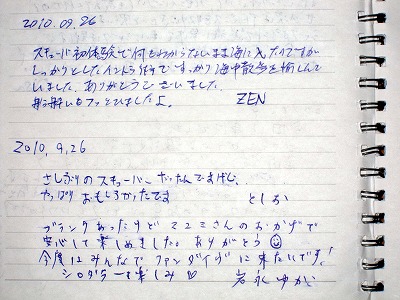 2010.09.26
スキューバ初体験で何もわからないまま海に入ったのですが
しっかりとしたイントラ付で すっかり海中散歩を愉しんで
いました。ありがとうございました。
船酔いもフッとびましたよ。 ZEN
2010,9,26
さしぶりのスキューバ だったんですけど、
やっぱりおもしろかったです としお
ブランクあったけどマユミさんのおかげで
安心して楽しめました。ありがとう
今度はみんなでファンダイブに来たいです!
シロワニを楽しみ♡ 岩永ゆか